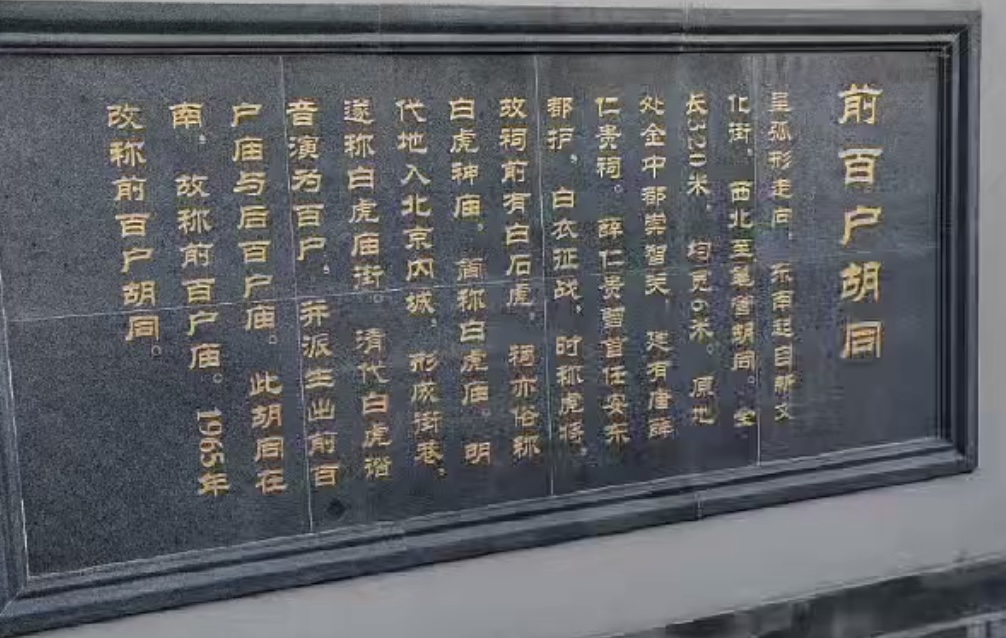 前百户胡同
呈弧形走向，东南起自新文
化街，西北至笔管胡同。全
长320米，均宽6米。原地
处金中都崇智关，建有唐薛
仁贵祠。薛仁贵曾首任安东
都护，白衣征战，时称虎将。
故祠前有白石虎。祠亦俗称
白虎神庙，简称白虎庙。明
代地入北京内城，形成街巷，
遂称白虎庙街。清代白虎谐
音演为百户，并派生出前百
户庙与后百户庙。此胡同在
南，故称前百户庙。1965年
改称前百户胡同。